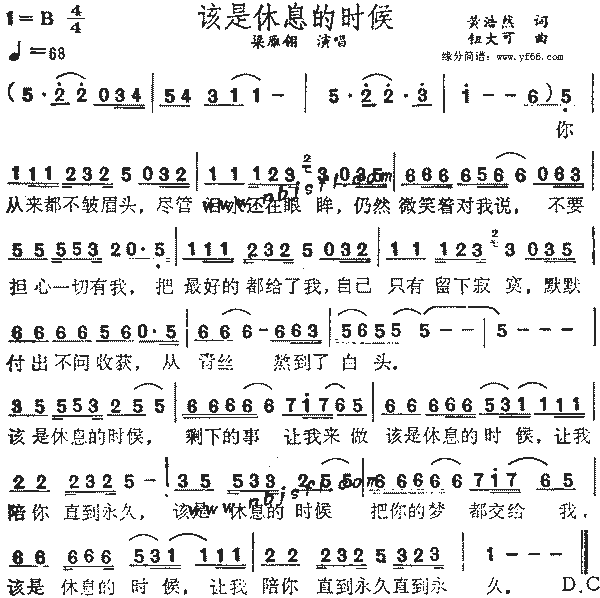 该是休息的时候
1=B 4/4
黄浩然 词
梁雁翎 演唱
钮大可 曲
♩=68
缘分简谱:www.yf66.com
(5·2 2 034 | 54 311- | 5·2 2·3 | 1--6) 5
你
111 232 5 032 | 11 123 2 3 035 | 666 656 6 063
从来都不皱眉头,尽管 泪水还在眼 眸,仍然 微笑着对我说, 不要
55 553 20·5 | 111 232 5 032 | 11 123 2 3 035
担心一切有我, 把 最好的都给了我,自己 只有留下寂 寞,默默
666 6 6 5 60·5 | 66 6-663 | 5655 5- | 5---
付出不问收获, 从 青丝 熬到了 白头。
35 553 2 55 | 6666 6 71765 | 66 666 531 111
该是休息的时候, 剩下的事 让我来做 该是休息的时 候,让我
22 232 5- | 35 533 2 55 | 6666 6 717 65
陪你 直到永久, 该是 休息的 时候 把你的梦 都交给 我,
www.nbjsfl.com
66 666 531 111 | 22 232 532 23 | 1--- ||
该是 休息的 时 候, 让我 陪你 直到永久直到永 久。 D.C